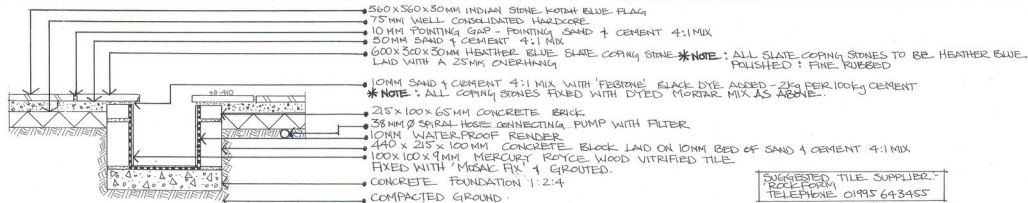 560x560x30MM INDIAN STONE KOTAH BLUE FLAG
75MM WELL CONSOLIDATED HARDCORE
10MM POINTING GAP - POINTING SAND & CEMENT 4:1 MIX
50MM SAND & CEMENT 4:1 MIX
600x300x30MM HEATHER BLUE SLATE COPING STONE *NOTE: ALL SLATE COPING STONES TO BE HEATHER BLUE.
LAID WITH A 25MM OVERHANG POLISHED: FINE RUBBED
10MM SAND & CEMENT 4:1 MIX WITH 'FEBTONE' BLACK DYE ADDED - 2Kg PER 100Kg CEMENT
*NOTE: ALL COPING STONES FIXED WITH DYED MORTAR MIX AS ABOVE.
215x100x65MM CONCRETE BRICK
38MM Ø SPIRAL HOSE CONNECTING PUMP WITH FILTER
10MM WATERPROOF RENDER
440 x 215 x 100MM CONCRETE BLOCK LAID ON 10MM BED OF SAND & CEMENT 4:1 MIX
100x100x9MM MERCURY ROYCE WOOD VITRIFIED TILE
FIXED WITH 'MOSAIC FIX' & GROUTED.
CONCRETE FOUNDATION 1:2:4
COMPACTED GROUND.
SUGGESTED TILE SUPPLIER:-
'ROCKFORM'
TELEPHONE 01995 643455